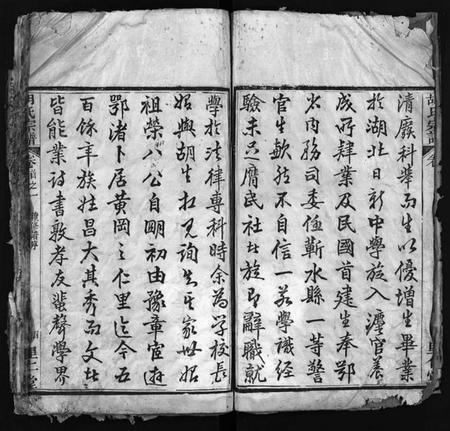 清廢科舉而生以優增生畢業
於湖北日新中學旋入瀝官養
成所肄業及民國肯建生奉鄂
省內務司委任蘄水縣一等警
官生歉然不自信一若學識經
驗未足膺民社也旋即辭職就
學於法律專科時余為學校長
始與胡生相見詢其家世始
祖榮八公自明初由豫章宦遊
鄂渚卜居黄岡之仁里迄今五
百餘年族姓昌大其秀而文者
皆能業詩書敦孝友蜚聲學界
胡氏宗譜
卷首之一